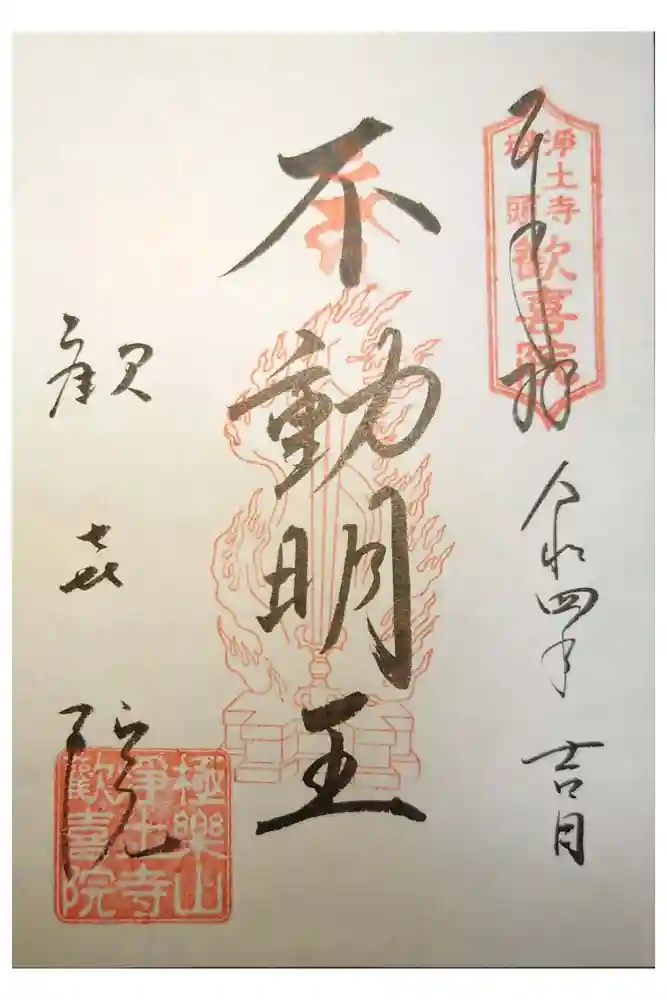 奉拝
浄土寺
塔頭
歓喜院
令和四年 吉月
不動明王
歓喜院
極樂山
淨土寺
歡喜院